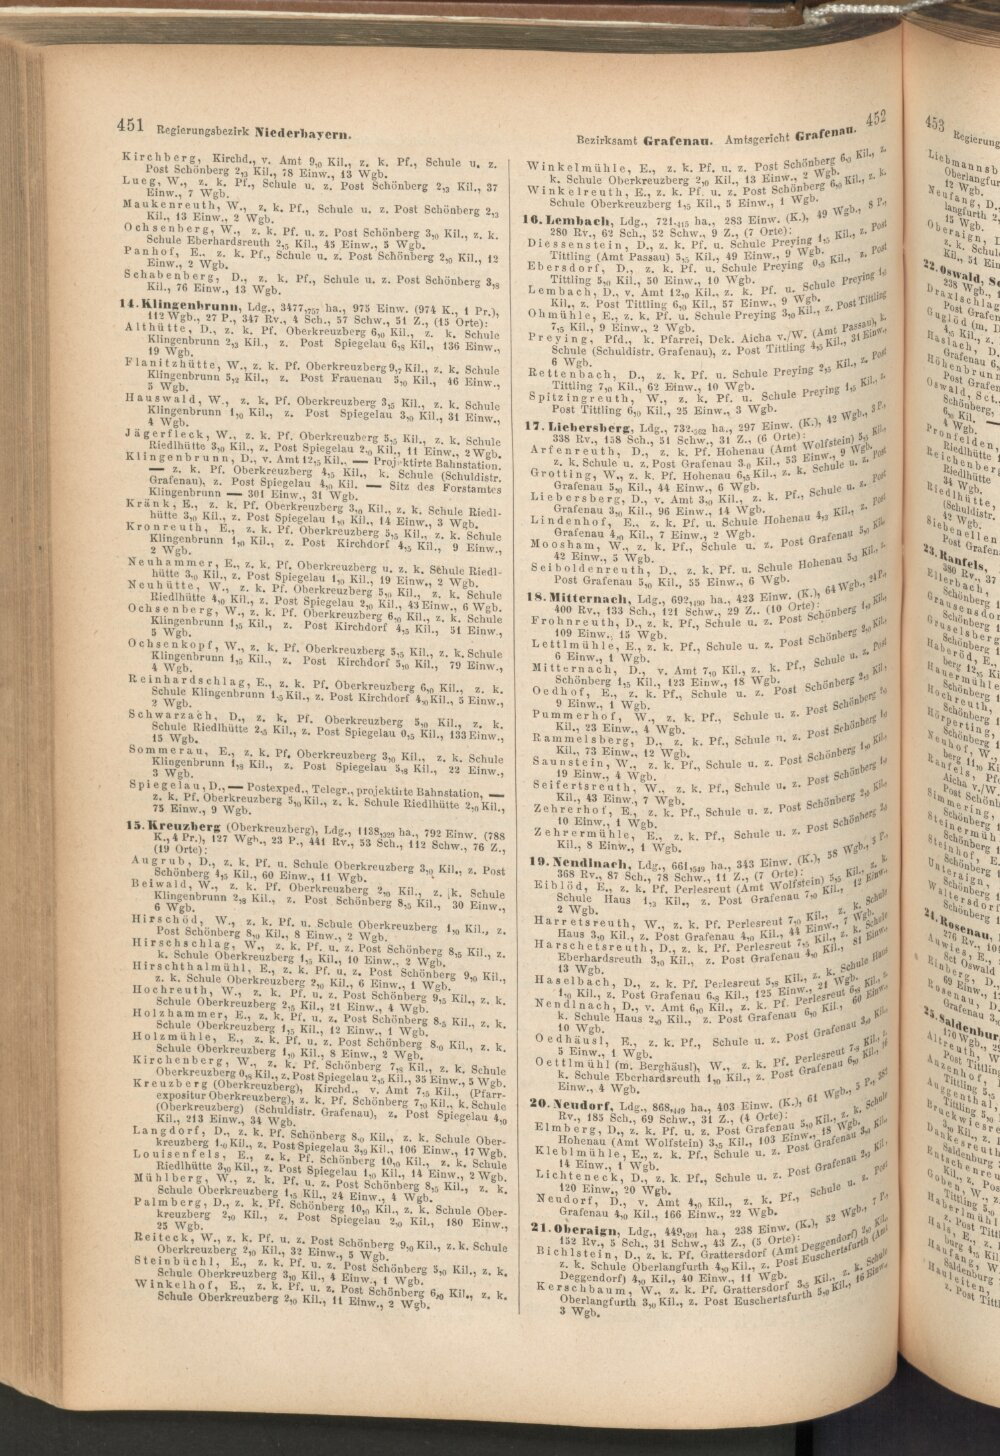 451 Regierungsbezirk Niederbayern.
Kirchberg, Kirchd., v. Amt 9,0 Kil., z. k. Pf., Schule u. z.
Post Schönberg 2,13 Kil., 78 Einw., 13 Wgb.
Lueg, W., z. k. Pf., Schule u. z. Post Schönberg 2,13 Kil., 37
Einw., 7 Wgb.
Maukenreuth, W., z. k. Pf., Schule u. z. Post Schönberg 2,13
Kil., 13 Einw., 2 Wgb.
Ochsenberg, W., z. k. Pf. u. z. Post Schönberg 3,0 Kil., z. k.
Schule Eberhardsreuth 2,5 Kil., 45 Einw., 5 Wgb.
Panhof, E., z. k. Pf., Schule u. z. Post Schönberg 2,0 Kil., 12
Einw., 2 Wgb.
Schabenberg, D., z. k. Pf., Schule u. z. Post Schönberg 3,8
Kil., 76 Einw., 13 Wgb.
14. Klingenbrunn, Ldg., 3477,757 ha., 975 Einw. (974 K., 1 Pr.),
112 Wgb., 27 P., 347 Rv., 4 Sch., 57 Schw., 51 Z., (15 Orte):
Althütte, D., z. k. Pf. Oberkreuzberg 6,0 Kil., z. k. Schule
Klingenbrunn 2,3 Kil., z. Post Spiegelau 6,8 Kil., 136 Einw.,
19 Wgb.
Flanitzhütte, W., z. k. Pf. Oberkreuzberg 9,7 Kil., z. k. Schule
Klingenbrunn 5,2 Kil., z. Post Frauenau 5,0 Kil., 46 Einw.,
5 Wgb.
Hauswald, W., z. k. Pf. Oberkreuzberg 3,5 Kil., z. k. Schule
Klingenbrunn 1,0 Kil., z. Post Spiegelau 3,0 Kil., 31 Einw.,
4 Wgb.
Jägerfleck, W., z. k. Pf. Oberkreuzberg 5,5 Kil., z. k. Schule
Riedlhütte 3,0 Kil., z. Post Spiegelau 2,0 Kil., 11 Einw., 2 Wgb.
Klingenbrunn, D., v. Amt 12,5 Kil. — Projektirte Bahnstation.
— z. k. Pf. Oberkreuzberg 4,5 Kil., k. Schule (Schuldistr.
Grafenau), z. Post Spiegelau 4,0 Kil. — Sitz des Forstamtes
Klingenbrunn — 301 Einw., 31 Wgb.
Kränk, E., z. k. Pf. Oberkreuzberg 3,0 Kil., z. k. Schule Riedl-
hütte 3,0 Kil., z. Post Spiegelau 1,0 Kil., 14 Einw., 3 Wgb.
Kronreuth, E., z. k. Pf. Oberkreuzberg 5,5 Kil., z. k. Schule
Klingenbrunn 1,0 Kil., z. Post Kirchdorf 4,5 Kil., 9 Einw.,
2 Wgb.
Neuhammer, E., z. k. Pf. Oberkreuzberg u. z. k. Schule Riedl-
hütte 3,0 Kil., z. Post Spiegelau 1,0 Kil., 19 Einw., 2 Wgb.
Neuhütte, W., z. k. Pf. Oberkreuzberg 5,0 Kil., z. k. Schule
Riedlhütte 4,0 Kil., z. Post Spiegelau 2,0 Kil., 43 Einw., 6 Wgb.
Ochsenberg, W., z. k. Pf. Oberkreuzberg 6,0 Kil., z. k. Schule
Klingenbrunn 1,5 Kil., z. Post Kirchdorf 4,5 Kil., 51 Einw.,
5 Wgb.
Ochsenkopf, W., z. k. Pf. Oberkreuzberg 5,5 Kil., z. k. Schule
Klingenbrunn 1,5 Kil., z. Post Kirchdorf 5,0 Kil., 79 Einw.,
4 Wgb.
Reinhardschlag, E., z. k. Pf. Oberkreuzberg 6,0 Kil., z. k.
Schule Klingenbrunn 1,5 Kil., z. Post Kirchdorf 4,0 Kil., 5 Einw.,
2 Wgb.
Schwarzach, D., z. k. Pf. Oberkreuzberg 5,0 Kil., z. k.
Schule Riedlhütte 2,5 Kil., z. Post Spiegelau 0,5 Kil., 133 Einw.,
15 Wgb.
Sommerau, E., z. k. Pf. Oberkreuzberg 3,0 Kil., z. k. Schule
Klingenbrunn 1,8 Kil., z. Post Spiegelau 5,8 Kil., 22 Einw.,
3 Wgb.
Spiegelau, D., — Postexped., Telegr., projektirte Bahnstation, —
z. k. Pf. Oberkreuzberg 5,0 Kil., z. k. Schule Riedlhütte 2,0 Kil.,
75 Einw., 9 Wgb.
15. Kreuzberg (Oberkreuzberg), Ldg., 1128,329 ha., 792 Einw. (788
K., 4 Pr.), 127 Wgb., 23 P., 441 Rv., 53 Sch., 112 Schw., 76 Z.,
(19 Orte):
Augrub, D., z. k. Pf. u. Schule Oberkreuzberg 3,0 Kil., z. Post
Schönberg 4,5 Kil., 60 Einw., 11 Wgb.
Beiwald, W., z. k. Pf. Oberkreuzberg 2,0 Kil., z. k. Schule
Klingenbrunn 2,8 Kil., z. Post Schönberg 8,5 Kil., 30 Einw.,
6 Wgb.
Hirschöd, W., z. k. Pf. u. Schule Oberkreuzberg 1,0 Kil., z.
Post Schönberg 8,0 Kil., 8 Einw., 2 Wgb.
Hirschschlag, W., z. k. Pf. u. z. Post Schönberg 8,5 Kil., z.
k. Schule Oberkreuzberg 1,5 Kil., 10 Einw., 2 Wgb.
Hirschthalmühl, E., z. k. Pf. u. z. Post Schönberg 9,0 Kil.,
z. k. Schule Oberkreuzberg 2,0 Kil., 6 Einw., 1 Wgb.
Hochreuth, W., z. k. Pf. u. z. Post Schönberg 9,5 Kil., z. k.
Schule Oberkreuzberg 2,5 Kil., 21 Einw., 4 Wgb.
Holzhammer, E., z. k. Pf. u. z. Post Schönberg 8,5 Kil., z. k.
Schule Oberkreuzberg 1,5 Kil., 12 Einw., 1 Wgb.
Holzmühle, E., z. k. Pf. u. z. Post Schönberg 8,0 Kil., z. k.
Schule Oberkreuzberg 1,0 Kil., 8 Einw., 2 Wgb.
Kirchenberg, W., z. k. Pf. Schönberg 7,8 Kil., z. k. Schule
Oberkreuzberg 0,8 Kil., z. Post Spiegelau 2,5 Kil., 35 Einw., 5 Wgb.
Kreuzberg (Oberkreuzberg), Kirchd., v. Amt 7,5 Kil., (Pfarr-
expositur Oberkreuzberg), z. k. Pf. Schönberg 7,0 Kil., k. Schule
(Oberkreuzberg) (Schuldistr. Grafenau), z. Post Spiegelau 4,0
Kil., 213 Einw., 34 Wgb.
Langdorf, D., z. k. Pf. Schönberg 8,0 Kil., z. k. Schule Ober-
kreuzberg 1,0 Kil., z. Post Spiegelau 3,0 Kil., 106 Einw., 17 Wgb.
Louisenfels, E., z. k. Pf. Schönberg 10,0 Kil., z. k. Schule
Riedlhütte 3,0 Kil., z. Post Spiegelau 1,0 Kil., 14 Einw., 2 Wgb.
Mühlberg, W., z. k. Pf. u. z. Post Schönberg 8,5 Kil., z. k.
Schule Oberkreuzberg 1,5 Kil., 24 Einw., 4 Wgb.
Palmberg, D., z. k. Pf. Schönberg 10,0 Kil., z. k. Schule Ober-
kreuzberg 2,0 Kil., z. Post Spiegelau 2,0 Kil., 180 Einw.,
25 Wgb.
Reiteck, W., z. k. Pf. u. z. Post Schönberg 9,0 Kil., z. k. Schule
Oberkreuzberg 2,0 Kil., 32 Einw., 5 Wgb.
Steinbüchl, E., z. k. Pf. u. z. Post Schönberg 5,0 Kil., z. k.
Schule Oberkreuzberg 3,0 Kil., 4 Einw., 1 Wgb.
Winkelhof, E., z. k. Pf. u. z. Post Schönberg 6,0 Kil., z. k.
Schule Oberkreuzberg 2,0 Kil., 11 Einw., 2 Wgb.
Bezirksamt Grafenau. Amtsgericht Grafenau. 452
Winkelmühle, E., z. k. Pf. u. z. Post Schönberg 6,0 Kil., z.
k. Schule Oberkreuzberg 2,0 Kil., 13 Einw., 2 Wgb.
Winkelreuth, E., z. k. Pf. u. z. Post Schönberg 6,0 Kil., z. k.
Schule Oberkreuzberg 1,5 Kil., 5 Einw., 1 Wgb.
16. Lembach, Ldg., 721,415 ha., 283 Einw. (K.), 49 Wgb., 8 P.,
280 Rv., 62 Sch., 52 Schw., 9 Z., (7 Orte):
Diessenstein, D., z. k. Pf. u. Schule Preying 1,5 Kil., z. Post
Tittling (Amt Passau) 5,5 Kil., 49 Einw., 9 Wgb.
Ebersdorf, D., z. k. Pf. u. Schule Preying 0,5 Kil., z. Post
Tittling 5,0 Kil., 50 Einw., 10 Wgb.
Lembach, D., v. Amt 12,0 Kil., z. k. Pf. u. Schule Preying 1,0
Kil., z. Post Tittling 6,0 Kil., 57 Einw., 9 Wgb.
Ohmühle, E., z. k. Pf. u. Schule Preying 3,0 Kil., z. Post Tittling
7,5 Kil., 9 Einw., 2 Wgb.
Preying, Pfd., k. Pfarrei, Dek. Aicha v./W. (Amt Passau), k.
Schule (Schuldistr. Grafenau), z. Post Tittling 4,5 Kil., 31 Einw.,
6 Wgb.
Rettenbach, D., z. k. Pf. u. Schule Preying 2,5 Kil., z. Post
Tittling 7,0 Kil., 62 Einw., 10 Wgb.
Spitzingreuth, W., z. k. Pf. u. Schule Preying 1,5 Kil., z.
Post Tittling 6,0 Kil., 25 Einw., 3 Wgb.
17. Liebersberg, Ldg., 732,562 ha., 297 Einw. (K.), 42 Wgb., 3 P.,
338 Rv., 158 Sch., 51 Schw., 31 Z., (6 Orte):
Arfenreuth, D., z. k. Pf. Hohenau (Amt Wolfstein) 5,5 Kil.,
z. k. Schule u. z. Post Grafenau 3,0 Kil., 53 Einw., 9 Wgb.
Grotting, W., z. k. Pf. Hohenau 6,5 Kil., z. k. Schule u. z. Post
Grafenau 5,0 Kil., 44 Einw., 6 Wgb.
Liebersberg, D., v. Amt 3,0 Kil., z. k. Pf., Schule u. z. Post
Grafenau 3,0 Kil., 96 Einw., 14 Wgb.
Lindenhof, E., z. k. Pf. u. Schule Hohenau 4,5 Kil., z. Post
Grafenau 4,0 Kil., 7 Einw., 2 Wgb.
Moosham, W., z. k. Pf., Schule u. z. Post Grafenau 5,0 Kil.,
42 Einw., 5 Wgb.
Seiboldenreuth, D., z. k. Pf. u. Schule Hohenau 5,3 Kil., z.
Post Grafenau 5,0 Kil., 55 Einw., 6 Wgb.
18. Mitternach, Ldg., 692,190 ha., 423 Einw. (K.), 64 Wgb., 24 P.,
400 Rv., 133 Sch., 121 Schw., 29 Z. (10 Orte):
Frohnreuth, D., z. k. Pf., Schule u. z. Post Schönberg 1,0 Kil.,
109 Einw., 15 Wgb.
Lettlmühle, E., z. k. Pf., Schule u. z. Post Schönberg 2,0 Kil.,
6 Einw., 1 Wgb.
Mitternach, D., v. Amt 7,0 Kil., z. k. Pf., Schule u. z. Post
Schönberg 1,5 Kil., 123 Einw., 18 Wgb.
Oedhof, E., z. k. Pf., Schule u. z. Post Schönberg 2,5 Kil.,
9 Einw., 1 Wgb.
Pummerhof, W., z. k. Pf., Schule u. z. Post Schönberg 2,0
Kil., 23 Einw., 4 Wgb.
Rammelsberg, D., z. k. Pf., Schule u. z. Post Schönberg 1,0
Kil., 73 Einw., 12 Wgb.
Saunstein, W., z. k. Pf., Schule u. z. Post Schönberg 1,0 Kil.,
19 Einw., 4 Wgb.
Seifertsreuth, W., z. k. Pf., Schule u. z. Post Schönberg 1,0
Kil., 43 Einw., 7 Wgb.
Zehrerhof, E., z. k. Pf., Schule u. z. Post Schönberg 2,0 Kil.,
10 Einw., 1 Wgb.
Zehrermühle, E., z. k. Pf., Schule u. z. Post Schönberg 2,0
Kil., 8 Einw., 1 Wgb.
19. Nendlnach, Ldg., 661,549 ha., 343 Einw. (K.), 58 Wgb., 5 P.,
368 Rv., 87 Sch., 78 Schw., 11 Z., (7 Orte):
Eiblöd, E., z. k. Pf. Perlesreut (Amt Wolfstein) 5,5 Kil., z. k.
Schule Haus 1,3 Kil., z. Post Grafenau 7,0 Kil., 12 Einw.,
2 Wgb.
Harretsreuth, W., z. k. Pf. Perlesreut 7,0 Kil., z. k. Schule
Haus 3,0 Kil., z. Post Grafenau 4,0 Kil., 44 Einw., 7 Wgb.
Harschetsreuth, D., z. k. Pf. Perlesreut 7,5 Kil., z. k. Schule
Eberhardsreuth 3,0 Kil., z. Post Grafenau 4,0 Kil., 81 Einw.,
13 Wgb.
Haselbach, D., z. k. Pf. Perlesreut 5,8 Kil., z. k. Schule Haus
1,0 Kil., z. Post Grafenau 6,8 Kil., 125 Einw., 21 Wgb.
Nendlnach, D., v. Amt 6,0 Kil., z. k. Pf. Perlesreut 6,8 Kil., z.
k. Schule Haus 2,0 Kil., z. Post Grafenau 6,0 Kil., 60 Einw.,
10 Wgb.
Oedhäusl, E., z. k. Pf., Schule u. z. Post Grafenau 3,0 Kil.,
5 Einw., 1 Wgb.
Oettlmühl (m. Berghäusl), W., z. k. Pf. Perlesreut 7,8 Kil., z.
k. Schule Eberhardsreuth 1,0 Kil., z. Post Grafenau 6,0 Kil., 16
Einw., 4 Wgb.
20. Neudorf, Ldg., 868,449 ha., 403 Einw. (K.), 61 Wgb., 5 P., 382
Rv., 185 Sch., 69 Schw., 31 Z., (4 Orte):
Elmberg, D., z. k. Pf. u. z. Post Grafenau 5,0 Kil., z. k. Schule
Hohenau (Amt Wolfstein) 3,5 Kil., 103 Einw., 18 Wgb.
Kleblmühle, E., z. k. Pf., Schule u. z. Post Grafenau 3,0 Kil.,
14 Einw., 1 Wgb.
Lichteneck, D., z. k. Pf., Schule u. z. Post Grafenau 2,0 Kil.,
120 Einw., 20 Wgb.
Neudorf, D., v. Amt 4,0 Kil., z. k. Pf., Schule u. z. Post
Grafenau 4,0 Kil., 166 Einw., 22 Wgb.
21. Oberaign, Ldg., 449,201 ha., 238 Einw. (K.), 52 Wgb., 7 P.,
152 Rv., 5 Sch., 31 Schw., 43 Z., (5 Orte):
Bichlstein, D., z. k. Pf. Grattersdorf (Amt Deggendorf) 2,0 Kil.,
z. k. Schule Oberlangfurth 4,0 Kil., z. Post Euschertsfurth (Amt
Deggendorf) 4,0 Kil., 40 Einw., 11 Wgb.
Kerschbaum, W., z. k. Pf. Grattersdorf 3,5 Kil., z. k. Schule
Oberlangfurth 3,0 Kil., z. Post Euschertsfurth 5,0 Kil., 16 Einw.,
3 Wgb.
453
22. Oswald,
23. Ranfels,
24. Rosenau,
25. Saldenburg